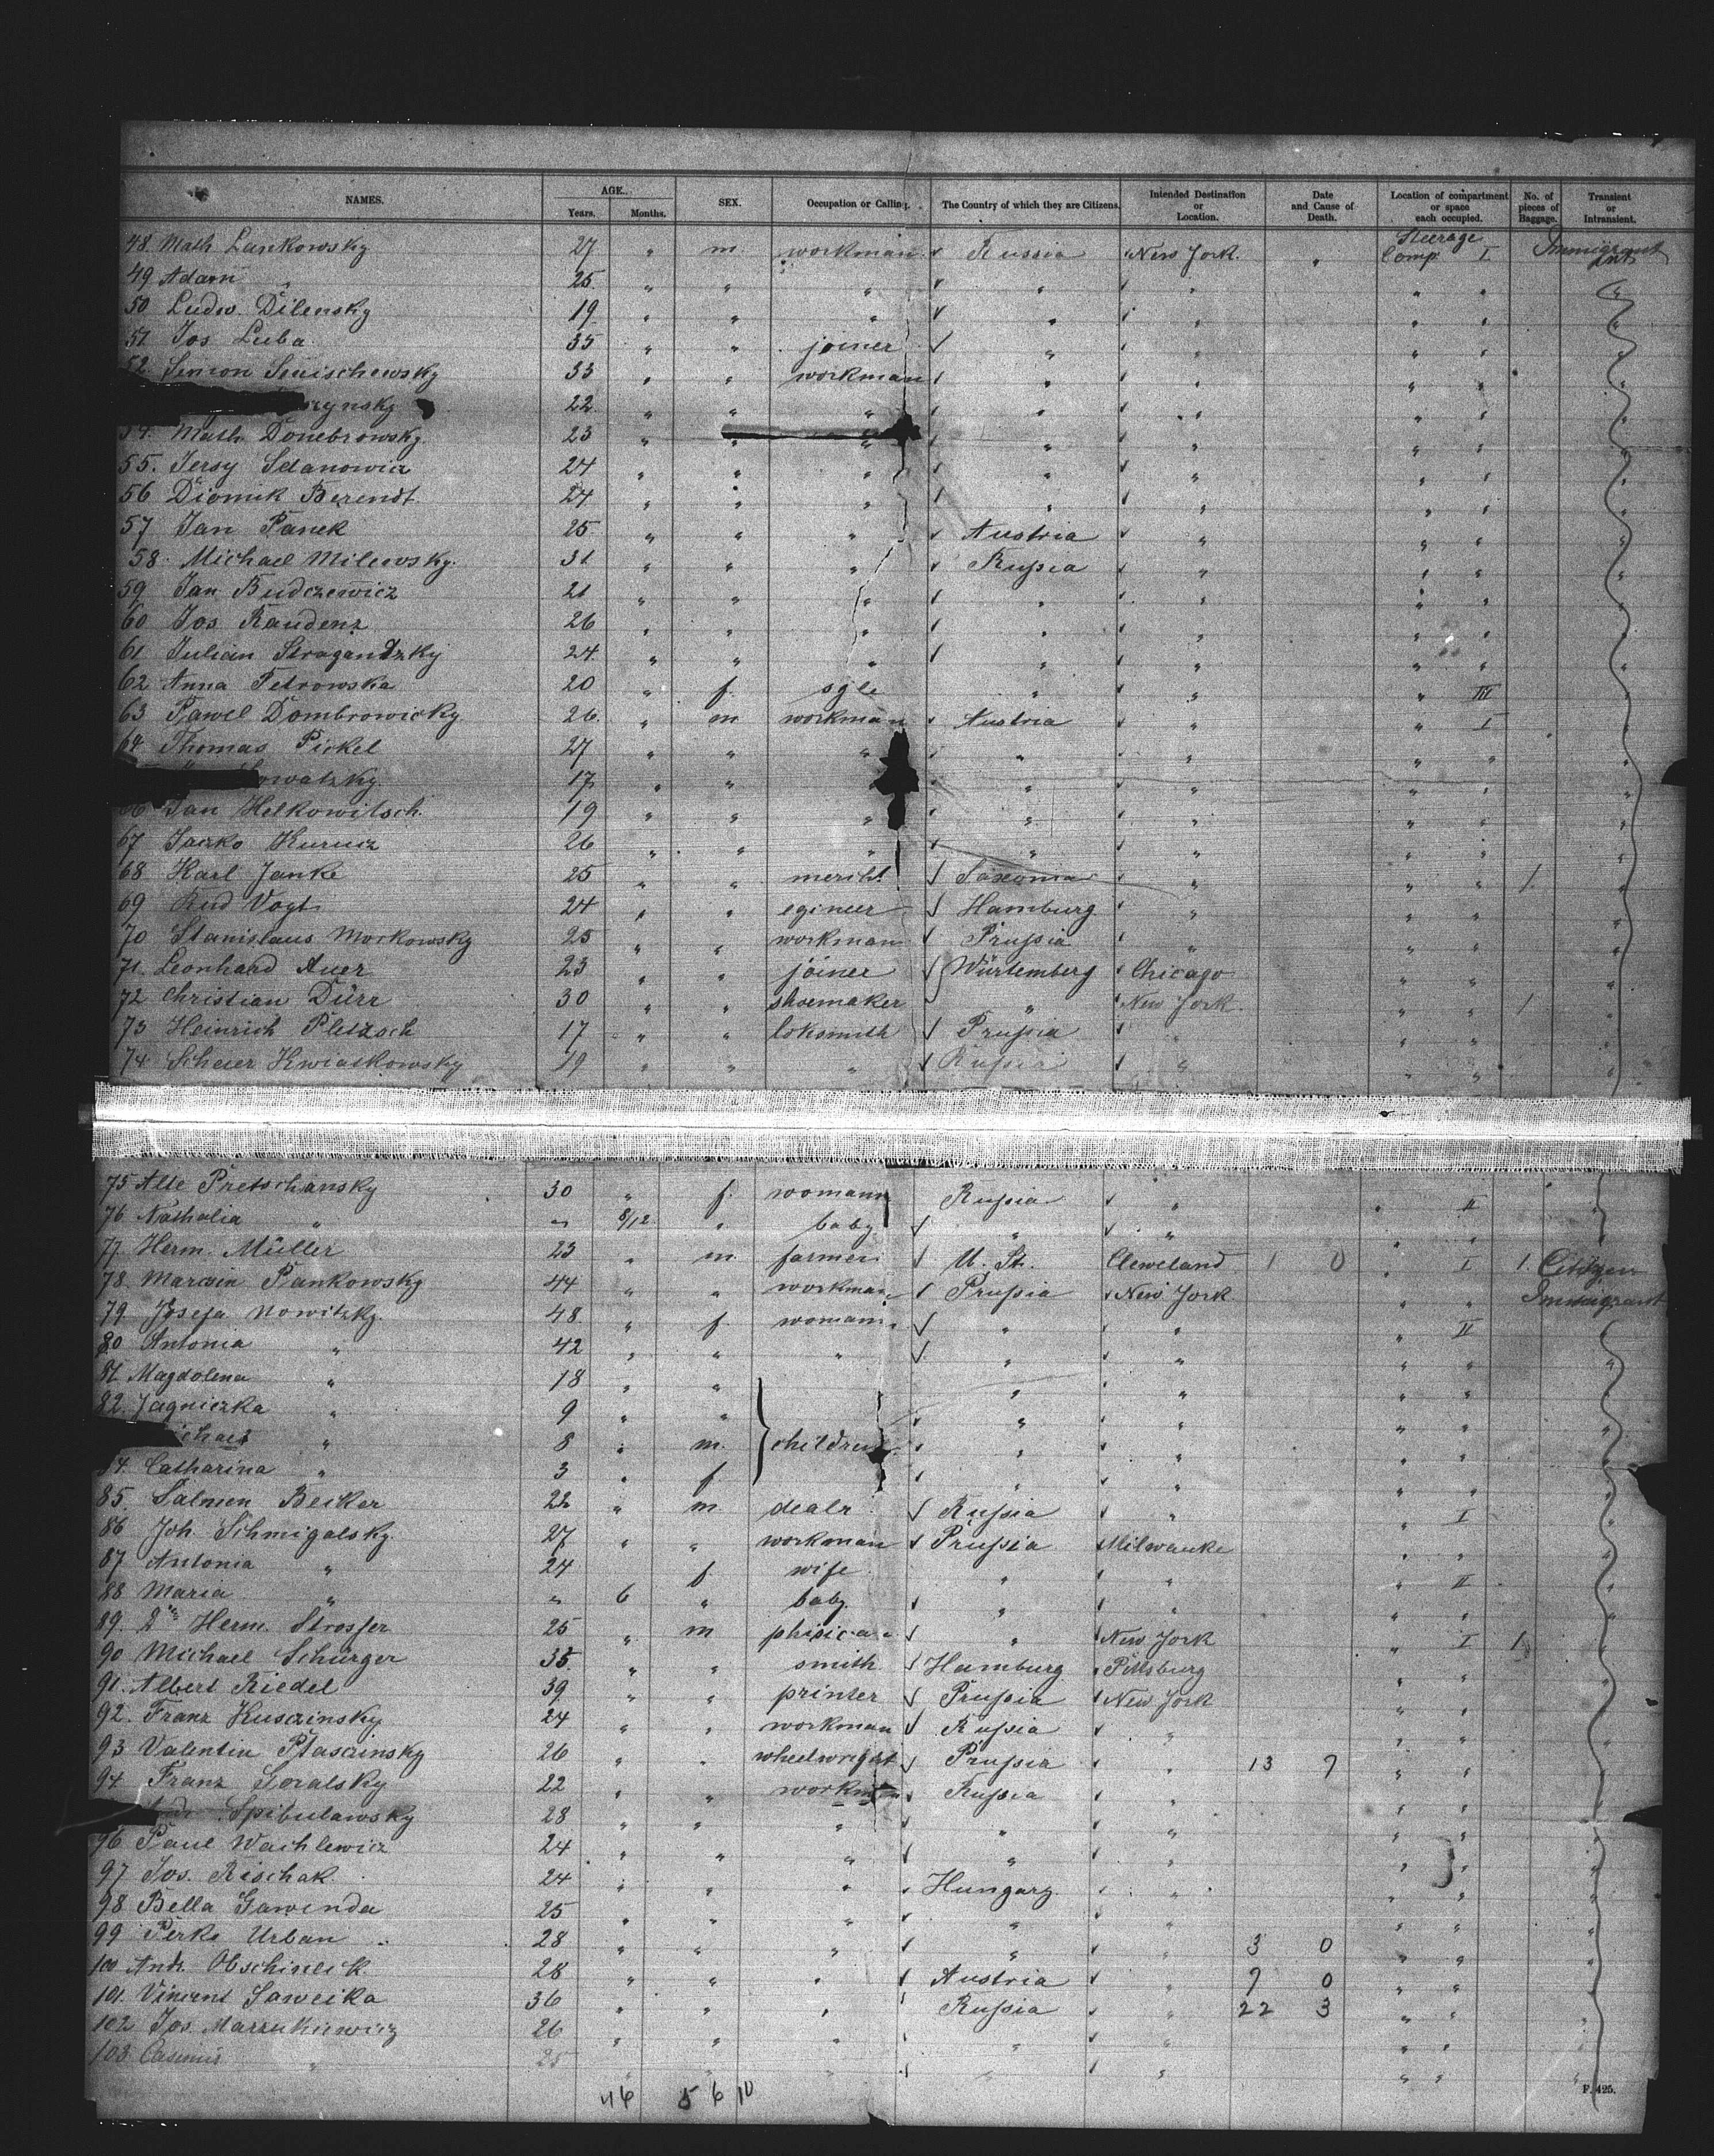 NAMES. AGE. Years. Months. SEX. Occupation or Calling. The Country of which they are Citizens. Intended Destination or Location. Date and Cause of Death. Location of compartment or space each occupied. No. of pieces of Baggage. Transient or Intransient.
48. Math. Lankowsky 27 " m workman Russia New York. " Steerage Comp. I Immigrant
49 Adam " 25 " " " " " " "
50 Ludw. Dilensky 19 " " " " " " "
51 Jos Luba 35 " " joiner " " " "
52 Simon 33 " " workman " " " "
zynsky 22 " " " " " " "
54. Math. Donebrowsky. 23 " " " " " " "
55. Jersy Sdanowicz 24 " " " " " " "
56 Dionik Berendt 24 " " " " " " "
57 Jan Panek 25 " " " Austria " " "
58. Michael Milewsky. 31 " " " Russia " " "
59 Jan Budczewicz 21 " " " " " " "
60 Jos Raudenz 26 " " " " " " "
61 Julian 24. " " " " " " "
62 Anna Petrowska 20 " f. sgle " " " III
63 Pawel Dombrowicky 26 " m workman Austria " " I
64 Thomas Pickel 27 " " " " " " "
owatzky. 17 " " " " " " "
66 Jan Helkowitsch. 19 " " " " " " "
67 Jaczko 26 " " " " " " "
68 Karl Janke 25 " " mercht Saxonia " " " 1
69 Rud Vogt 24 " " egineer Hamburg " " "
70 Stanislaus Morkowsky 25 " " workman Prussia " " "
71. Leonhard Auer 23 " " joiner Würtemberg Chicago " "
72 Christian Dürr 30 " " shoemaker " New York. " " 1
73 Heinrich Pletzsch 17 " " loksmith Prussia " " "
74 Scheier Kwiatkowsky 19 " " " Russia " " "
75 Alte Pretschansky 30 " f. womann Russia " " II
76 Nathalia " " 8/12 " baby " " " "
77. Herm. Müller 23 " m farmer U. St. Cleveland 1 0 " I 1. Citizen
78. Marcin Pankowsky 44 " " workman Prussia New York " " Immigrant
79. Josefa Nowitzky. 48 " f. womann " " " II
80 Antonia " 42 " " " " " " "
81. Magdolena " 18 " " " " " "
82. Jagniezka " 9 " " " " " "
ichael " 8 " m. children " " " "
84. Catharina " 3 " f " " " "
85. Salmen Becker 22 " m dealr Russia " " I
86 Joh. Schmigalsky. 27 " " workman Prussia Milwauke " "
87 Antonia " 24 f wife " " " II
88 Maria " " 6 " baby " " " "
89. Dr Herm. Strosser 25 " m phisician " New York " I 1
90 Michael Schürger 35. " " smith Hamburg Pittsburg " "
91. Albert Riedel 39 " " printer Prussia New York " "
92. Franz Kusczinsky 24 " " workman Russia " " "
93 Valentin Ptasczinsky 26 " " wheelwright Prussia " 13 7 " "
94. Franz Goralsky 22 " " workman Russia " " "
Andr. Spibulawsky 28 " " " " " " "
96 Paul Wachlewicz 24 " " " " " " "
97 Jos. Rischak 24 " " " Hungary " " "
98 Bella Gawenda 25 " " " " " " "
99 Perko Urban 28 " " " " " 3 0 " "
100 Andr. Obschineik 28 " " " Austria " 7 0 " "
101. Vincent Saweika 36 " " " Russia " 22 3 " "
102 Jos Marzukiewicz 26 " " " " " " "
103 Casimir " 25 " " " " " " "
46 5 6 10
F. 425.